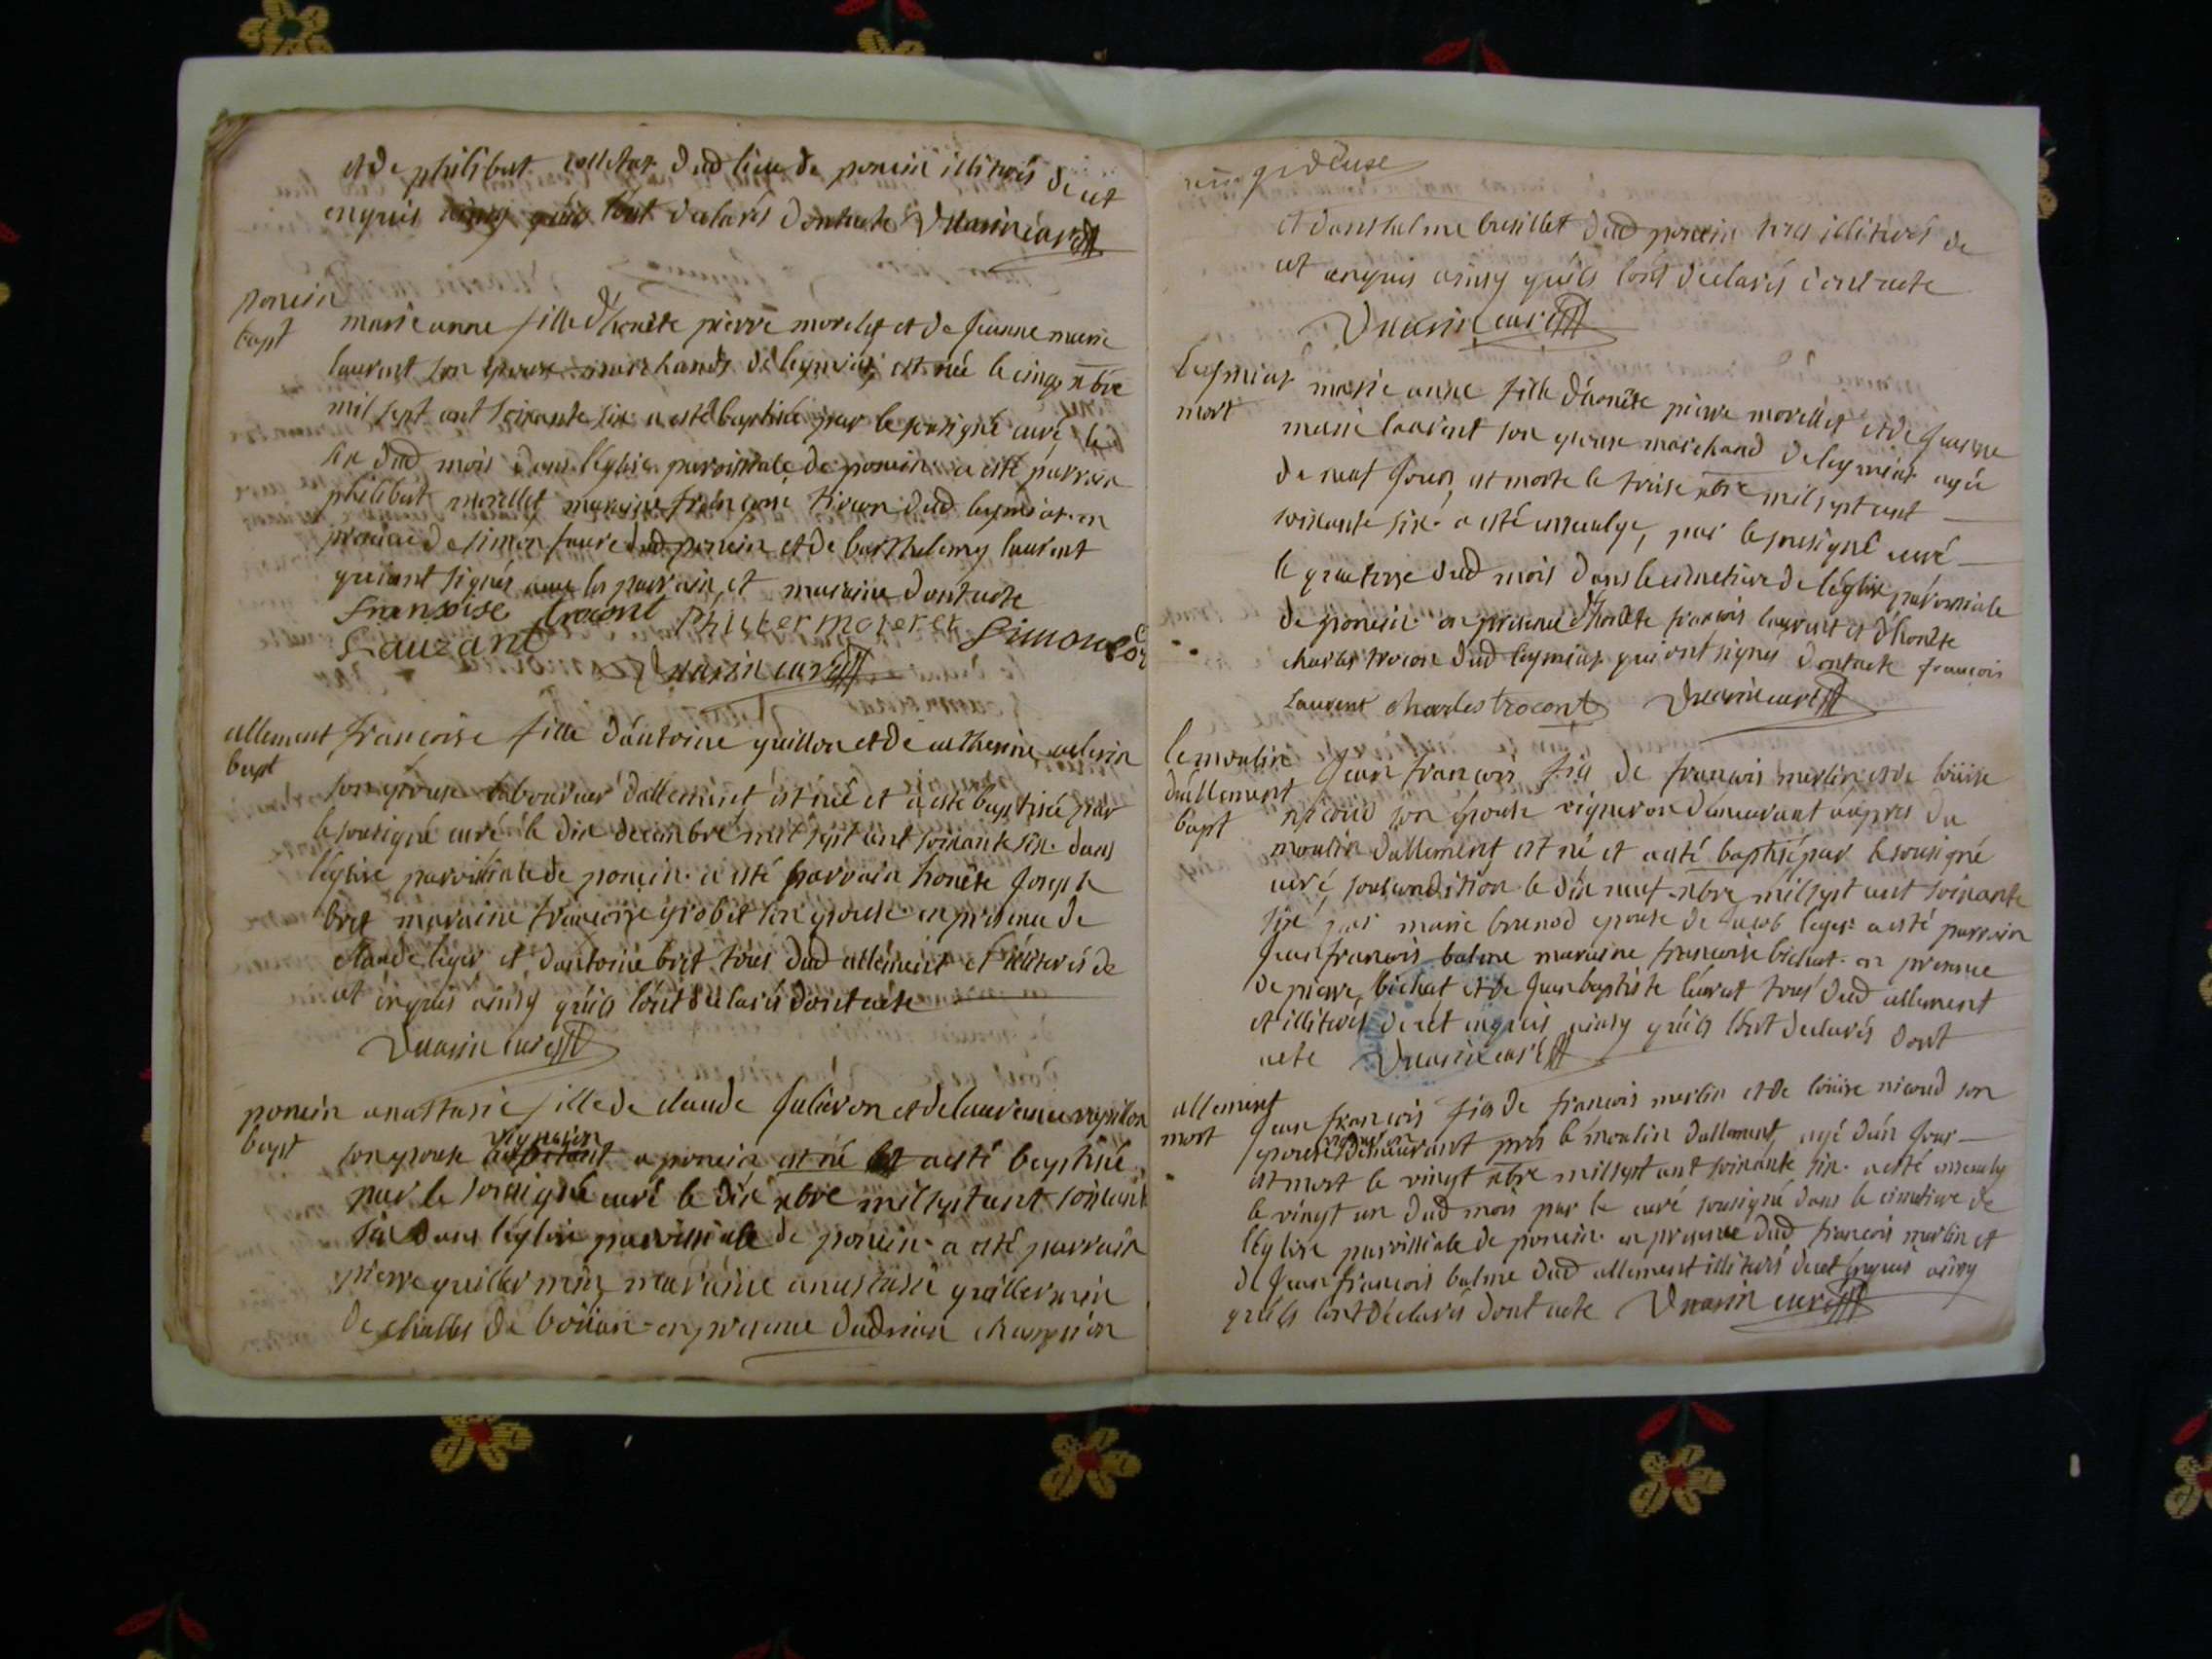 et de philibert colletar dud lieu de poncin illiterés de ce
enquis ainsy quils lont declarés dont acte Duarin curé
poncin
bapt
marie anne fille d'honête pierre morelet et de jeanne marie
laurent son epouse marchands de leymiat est née le cinq xbre
mil sept cent soixante six a esté baptisée par le sousigné curé le
six dud mois dans l'eglise paroissiale de poncin a esté parrain
philibert morellet maraine françoise trocon dud leymiat en
presence de simon faure dud poncin et de barthelemy laurent
qui ont signés avec les parrain et maraine dont acte
fransoise trocont
Lauzant
Duarin curé
allement
bapt
francoise fille d'antoine guillon et de catherine
son epouse laboureur dallement est née et a esté baptisée par
le sousigné curé le dix decembre mil sept cent soixante six dans
l'eglise paroissiale de poncin a esté parrain honête joseph
bret maraine francoise grobet son epouse en presence de
claude leger et d'antoine bret tous dud allement et illiterés de
ce enquis ainsy quils lont declarés dont acte
Duarin curé
poncin
bapt
anastasie fille de claude julieron et de laurence
son epouse vigneron a poncin est né et a esté baptisée
par le sousigné curé le dix xbre mil sept cent soixante
six dans l'eglise paroissiale de poncin a esté parrain
pierre guillermin maraine anastasie guillermin
de challes de en presence dadrien champion

et danthelme busillet dud poncin tous illiterés de
ce enquis ainsy quils lont declarés dont acte
Duarin curé
leymiat
mort
marie anne fille d'honête pierre morellet et de jeanne
marie laurent son epouse marchand de leymiat agée
de neuf jours est morte le treise xbre mil sept cent
soixante six a esté ensevelye, par le sousigné curé
le quatorse dud mois dans le cimetiere de l'eglise paroissiale
de poncin en presence d'honête françois laurent et d'honête
charles trocon dud leymiat qui ont signés dont acte françois
Laurent charles trocont Duarin curé
le moulin
dallement
bapt
Jean françois fils de françois merlin et de loüise
nicoud son epouse vigneron demeurant aupres du
moulin dallement est né et a esté baptisé par le sousigné
curé, sous condition le dix neuf xbre mil sept cent soixante
six par marie brunod epouse de jacob leger a esté parrain
jean françois balme maraine françoise bichat en presence
de pierre bichat et de jean baptiste tous dud allement
et illiterés de ce enquis ainsy quils lont declarés dont
acte Duarin curé
allement
mort
Jean françois fils de françois merlin et de loüise nicoud son
epouse vigneron demeurant près le moulin dallement, agé d'un jour
est mort le vingt xbre mil sept cent soixante six a esté ensevely
le vingt un dud mois par le curé sousigné dans le cimetiere de
l'eglise paroissiale de poncin en presence dud françois merlin et
de jean françois balme dud allement illiterés de ce enquis ainsy
quils lont declarés dont acte Duarin curé